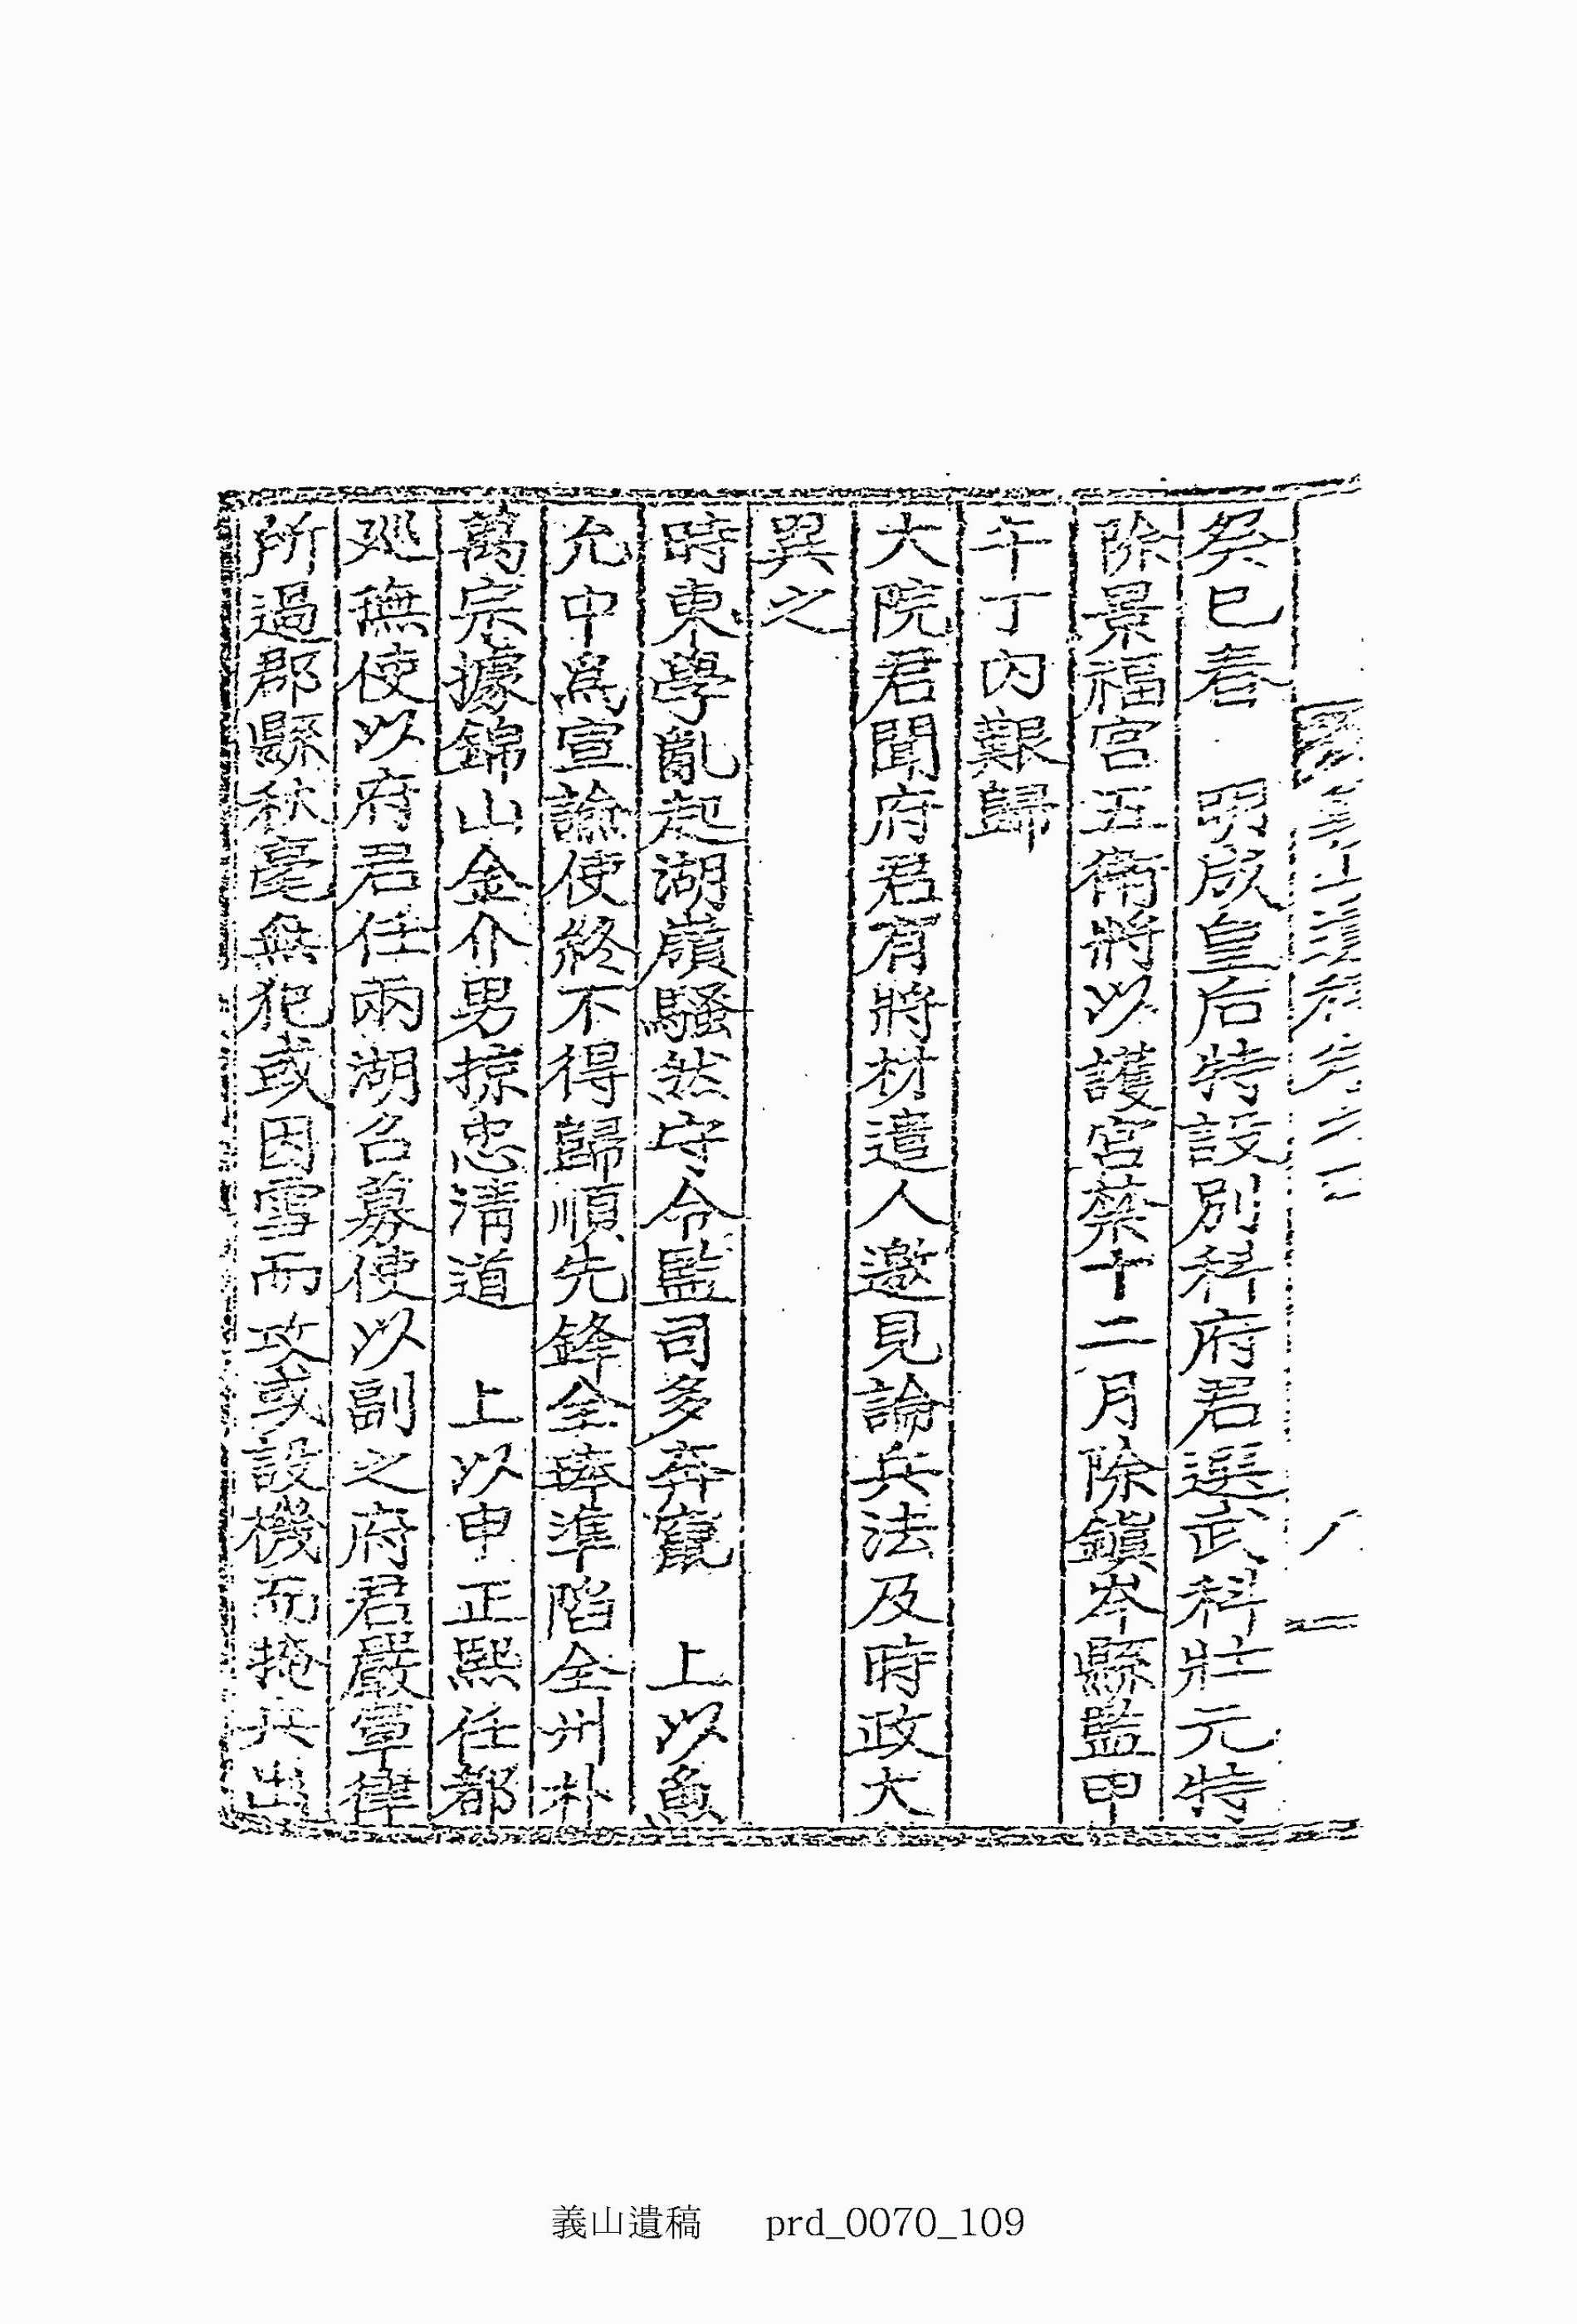 癸巳春 明成皇后特設別科府君選武科壯元特
除景福宮五衛將以護宮禁十二月除鎭岑縣監甲
午丁內艱歸
大院君聞府君有將材遣人邀見論兵法及時政大
異之
時東學亂起湖嶺騷然守令監司多奔竄 上以魚
允中爲宣諭使終不得歸順先鋒全琫準陷全州朴
萬宗據錦山金介男掠忠淸道 上以申正熙任都
廵撫使以府君任兩湖召募使以副之府君嚴軍律
所過郡縣秋毫無犯或因雪而攻或設機而掩兵出
義山遺稿 prd_0070_109